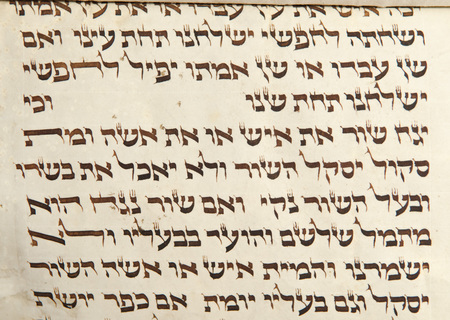 איש את עין עבדו או את עין אמתו
ושחתה לחפשי ישלחנו תחת עינו ואם
שן עבדו או שן אמתו יפיל לחפשי
ישלחנו תחת שנו וכי
יגח שור את איש או את אשה ומת
סקול יסקל השור ולא יאכל את בשרו
ובעל השור נקי ואם שור נגח הוא
מתמל שלשם והועד בבעליו ולא
ישמרנו והמית איש או אשה השור
יסקל וגם בעליו יומת אם כפר יושת